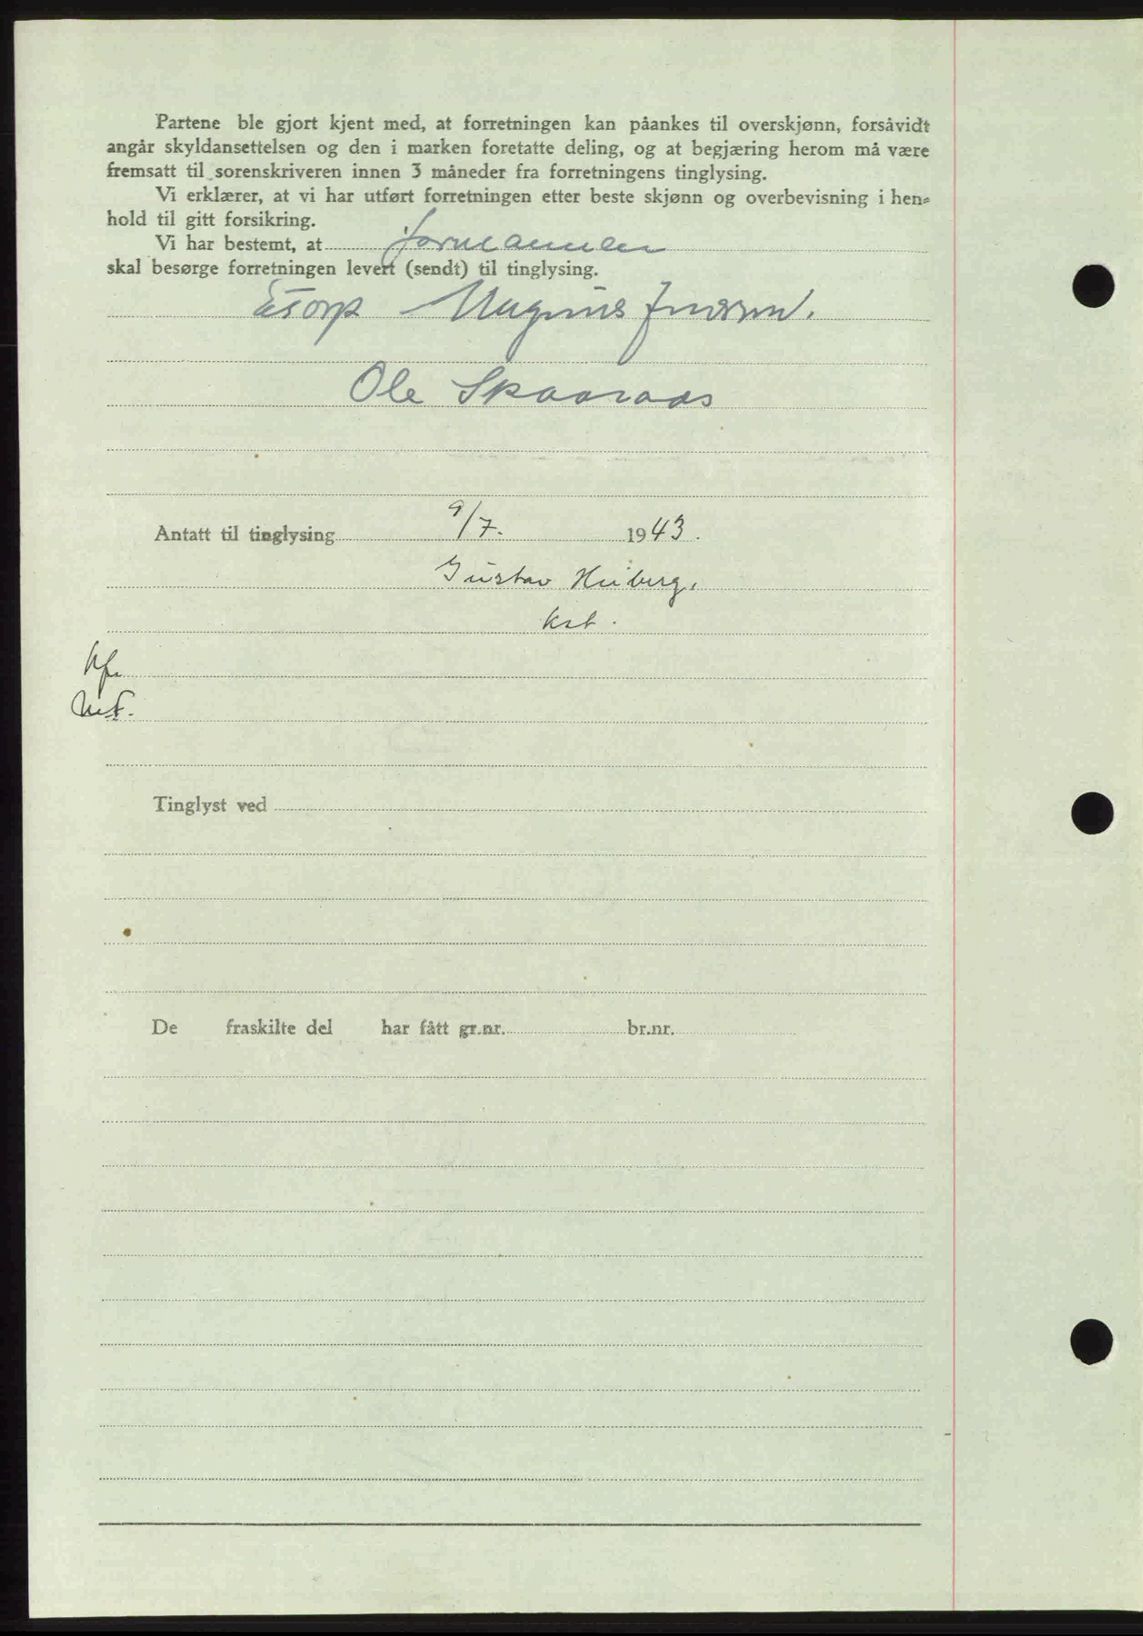 Partene ble gjort kjent med, at forretningen kan påankes til overskjønn, forsåvidt
angår skyldansettelsen og den i marken foretatte deling, og at begjæring herom må være
fremsatt til sorenskriveren innen 3 måneder fra forretningens tinglysing.
Vi erklærer, at vi har utført forretningen etter beste skjønn og overbevisning i hen=
hold til gitt forsikring.
Vi har bestemt, at formannen
skal besørge forretningen levert (sendt) til tinglysing.
Magnus
Ole Skaaraas
Antatt til tinglysing 9/7. 1943.
Gustav Heiberg,
kst.
Tinglyst ved
De fraskilte del har fått gr.nr. br.nr.